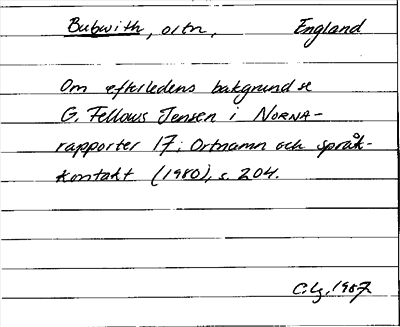 Bubwith, ortn, England
Om efterledens bakgrund se
G. Fellows Jensen i NORNA-
rapporter 17; Ortnamn och språk-
kontakt (1980), s. 204.
1987